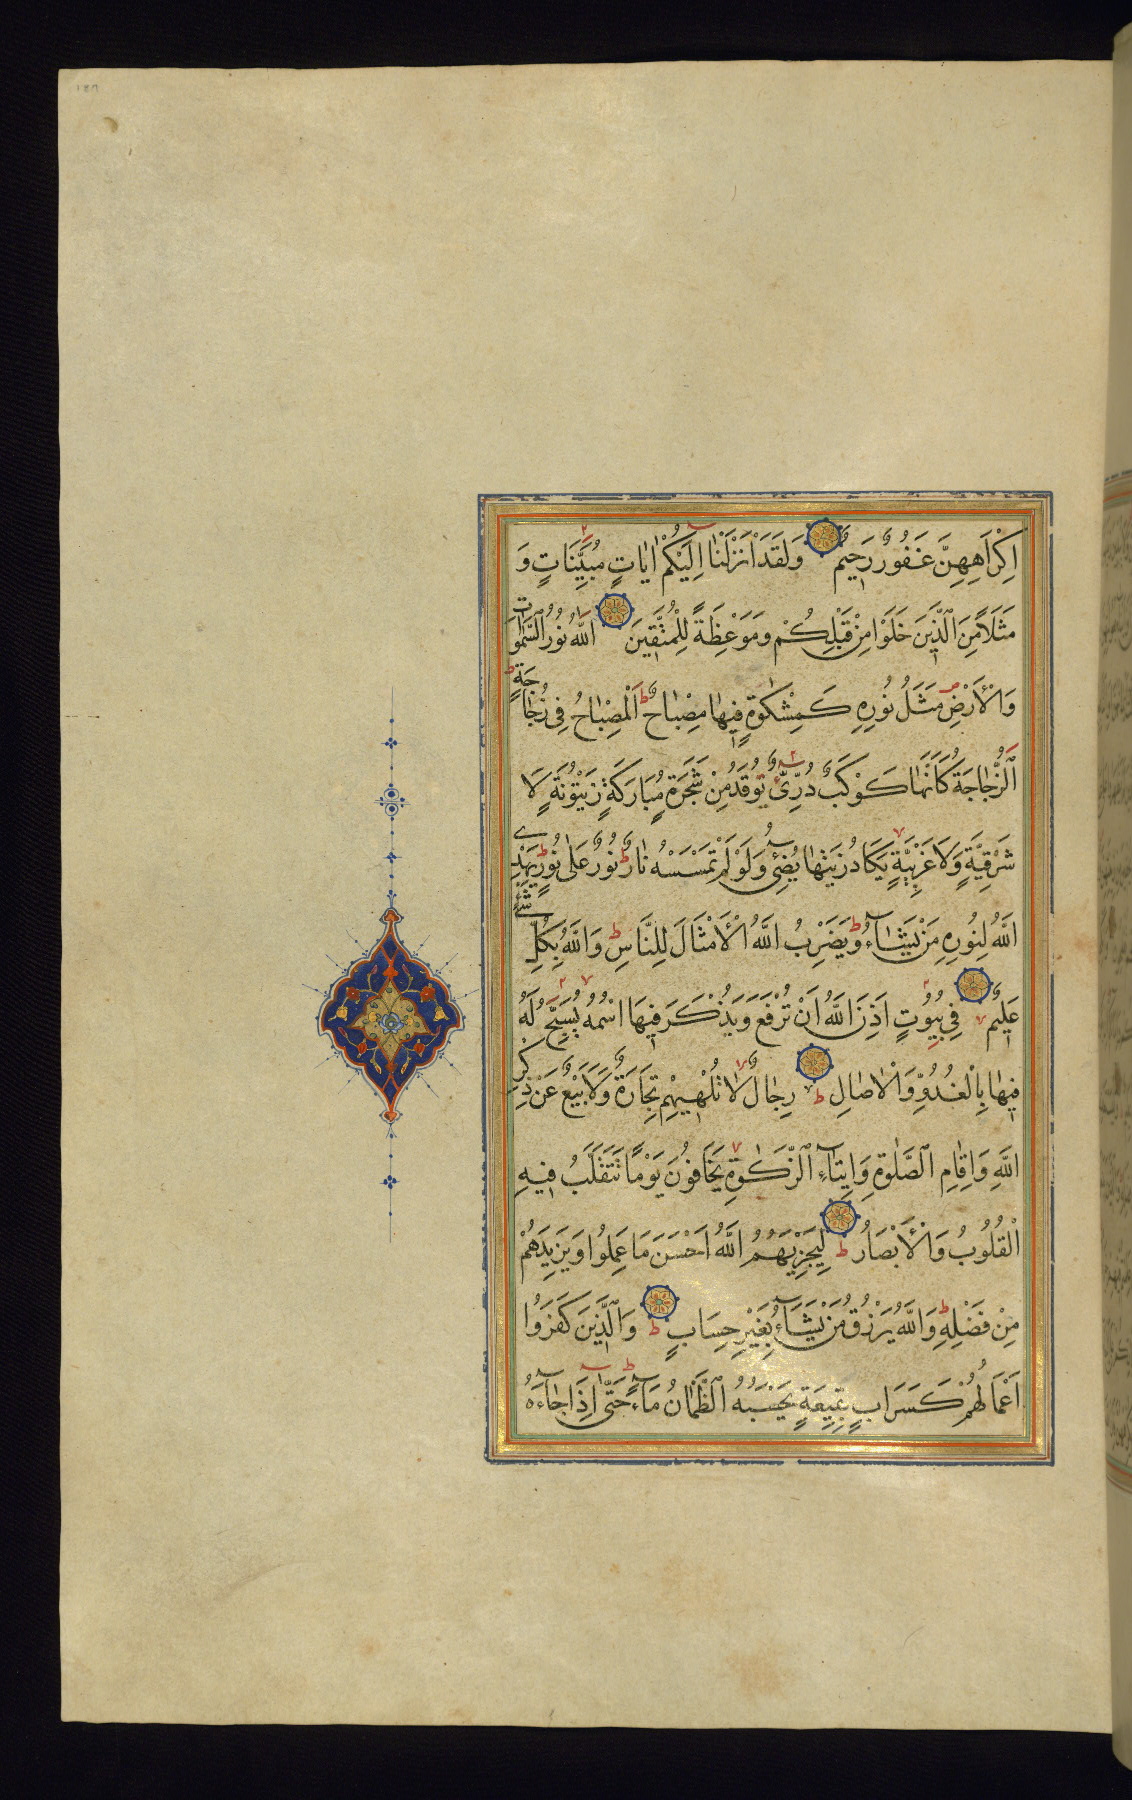 ١٨٧
اِكْرَاهِهِنَّ غَفُورٌ رَحِيمٌ وَلَقَدْ اَنْزَلْنَا اِلَيْكُمْ اٰيَاتٍ مُبَيِّنَاتٍ وَ
مَثَلًا مِنَ الَّذِينَ خَلَوْا مِنْ قَبْلِكُمْ وَمَوْعِظَةً لِلْمُتَّقِينَ اَللّٰهُ نُورُ السَّمٰوَاتِ
وَالْاَرْضِ مَثَلُ نُورِهِ كَمِشْكٰوةٍ فِيهَا مِصْبَاحٌ اَلْمِصْبَاحُ فِى زُجَاجَةٍ
اَلزُّجَاجَةُ كَاَنَّهَا كَوْكَبٌ دُرِّىٌّ يُوقَدُ مِنْ شَجَرَةٍ مُبَارَكَةٍ زَيْتُونَةٍ لَا
شَرْقِيَّةٍ وَلَا غَرْبِيَّةٍ يَكَادُ زَيْتُهَا يُضِىۤءُ وَلَوْ لَمْ تَمْسَسْهُ نَارٌ نُورٌ عَلٰى نُورٍ يَهْدِى
اللّٰهُ لِنُورِهِ مَنْ يَشَاۤءُ وَيَضْرِبُ اللّٰهُ الْاَمْثَالَ لِلنَّاسِ وَاللّٰهُ بِكُلِّ شَىْءٍ
عَلِيمٌ فِى بُيُوتٍ اَذِنَ اللّٰهُ اَنْ تُرْفَعَ وَيُذْكَرَ فِيهَا اسْمُهُ يُسَبِّحُ لَهُ
فِيهَا بِالْغُدُوِّ وَالْاٰصَالِ رِجَالٌ لَا تُلْهِيهِمْ تِجَارَةٌ وَلَا بَيْعٌ عَنْ ذِكْرِ
اللّٰهِ وَاِقَامِ الصَّلٰوةِ وَاِيتَاۤءِ الزَّكٰوةِ يَخَافُونَ يَوْمًا تَتَقَلَّبُ فِيهِ
الْقُلُوبُ وَالْاَبْصَارُ لِيَجْزِيَهُمُ اللّٰهُ اَحْسَنَ مَا عَمِلُوا وَيَزِيدَهُمْ
مِنْ فَضْلِهِ وَاللّٰهُ يَرْزُقُ مَنْ يَشَاۤءُ بِغَيْرِ حِسَابٍ وَالَّذِينَ كَفَرُوا
اَعْمَالُهُمْ كَسَرَابٍ بِقِيعَةٍ يَحْسَبُهُ الظَّمْاٰنُ مَاۤءً حَتّٰى اِذَا جَاۤءَهُ